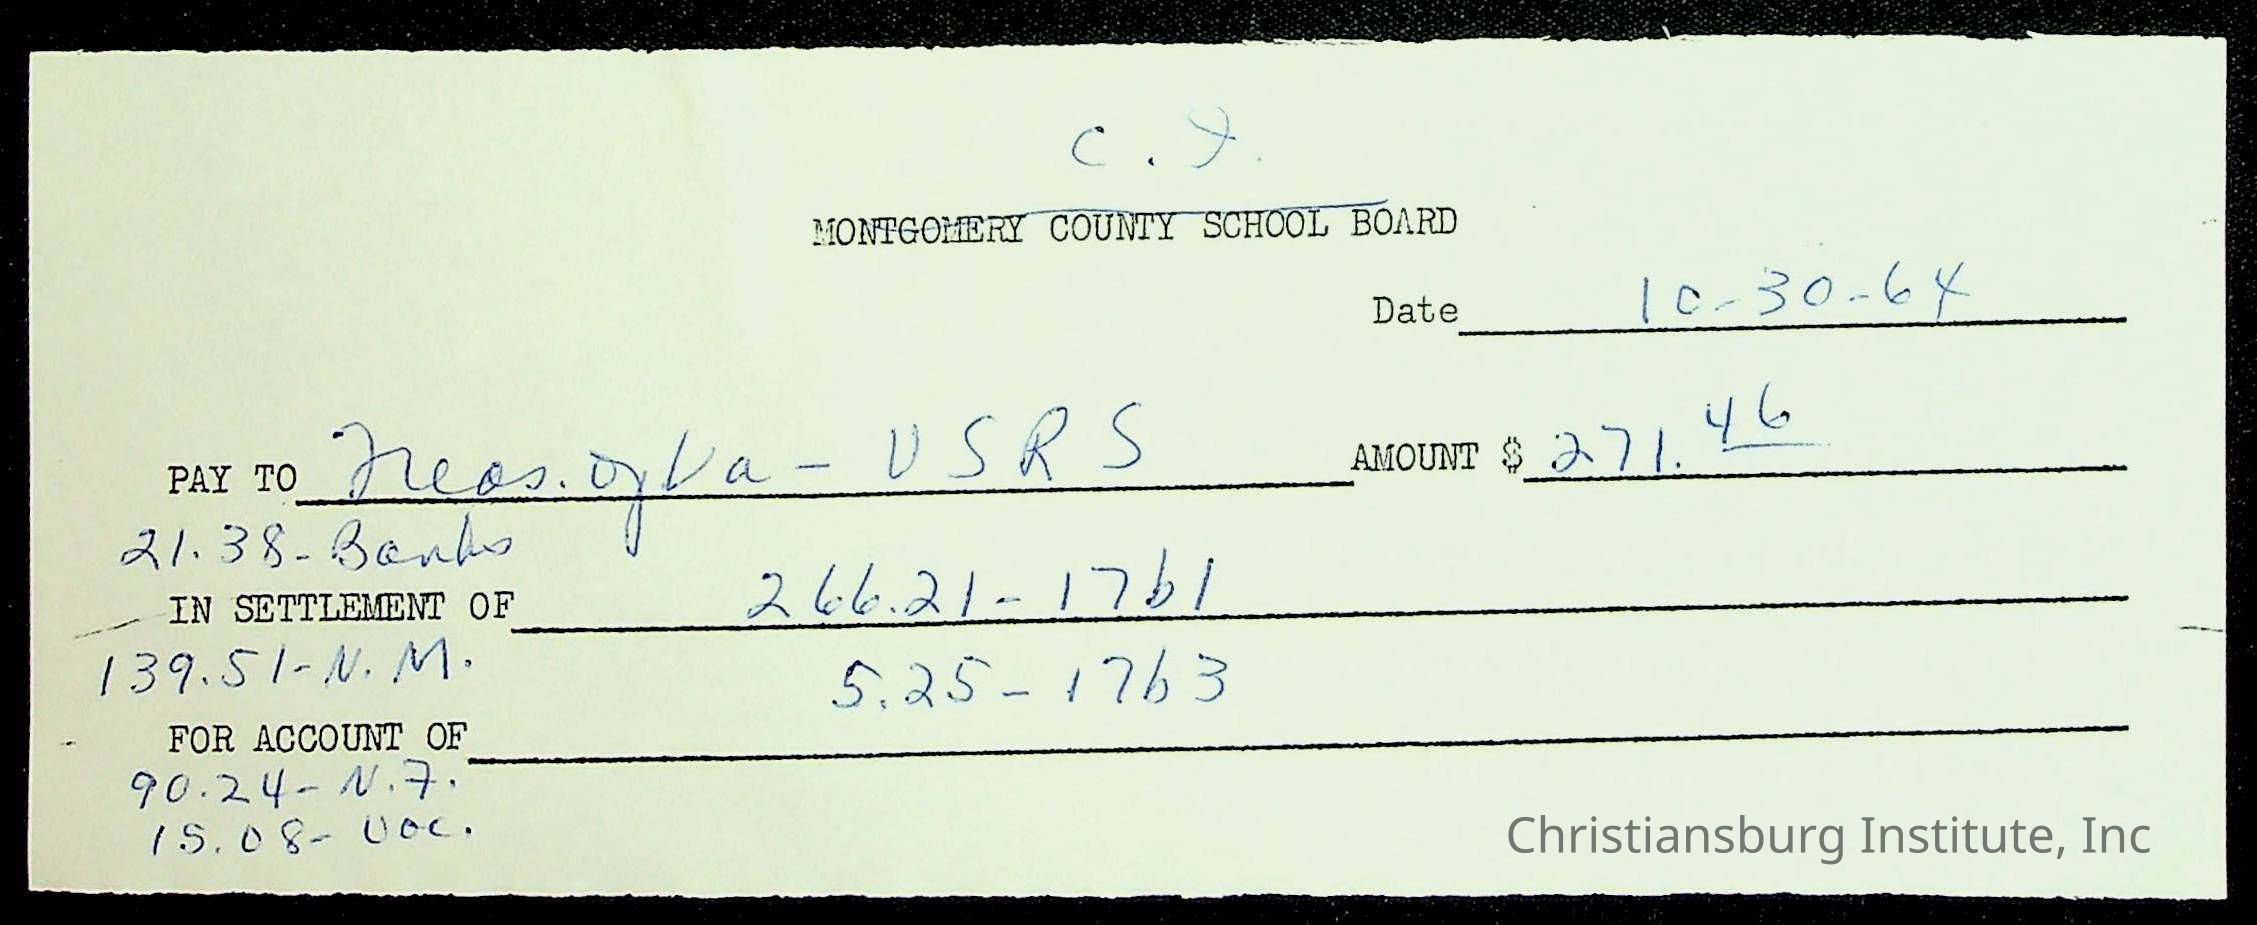 C. I.
MONTGOMERY COUNTY SCHOOL BOARD
Date 10-30-64
PAY TO Treas. of Va - VSRS AMOUNT $ 271.46
21.38 - Banks
IN SETTLEMENT OF 266.21 - 17b1
139.51 - N. M. 5.25 - 17b3
FOR ACCOUNT OF
90.24 - N. F.
15.08 - Voc.
Christiansburg Institute, Inc